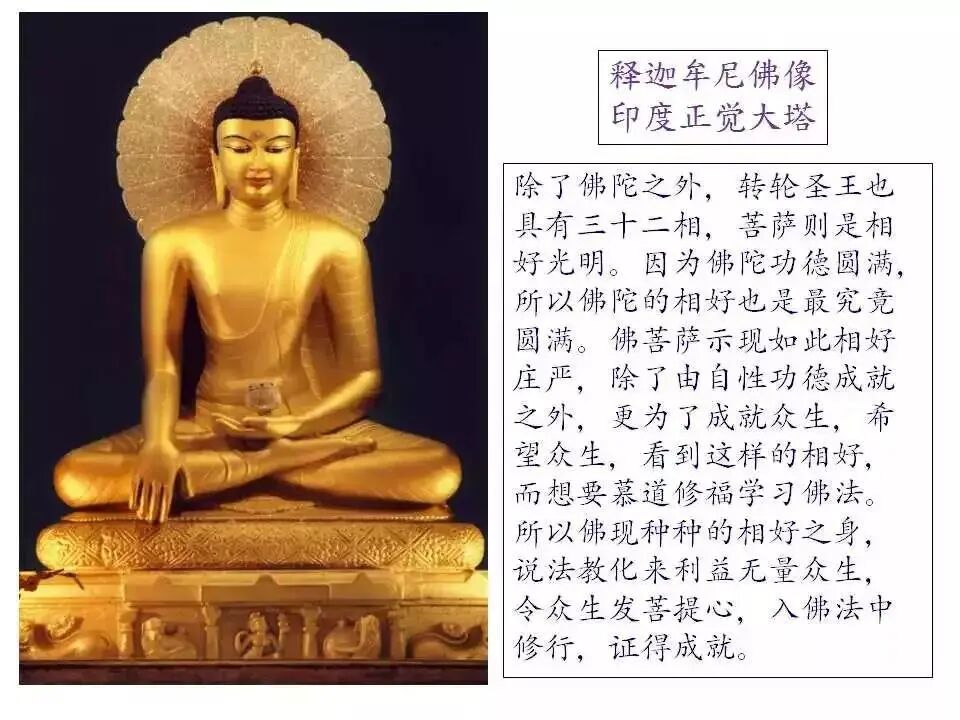 释迦牟尼佛像
印度正觉大塔
除了佛陀之外，转轮圣王也
具有三十二相，菩萨则是相
好光明。因为佛陀功德圆满，
所以佛陀的相好也是最究竟
圆满。佛菩萨示现如此相好
庄严，除了由自性功德成就
之外，更为了成就众生，希
望众生，看到这样的相好，
而想要慕道修福学习佛法。
所以佛现种种的相好之身，
说法教化来利益无量众生，
令众生发菩提心，入佛法中
修行，证得成就。